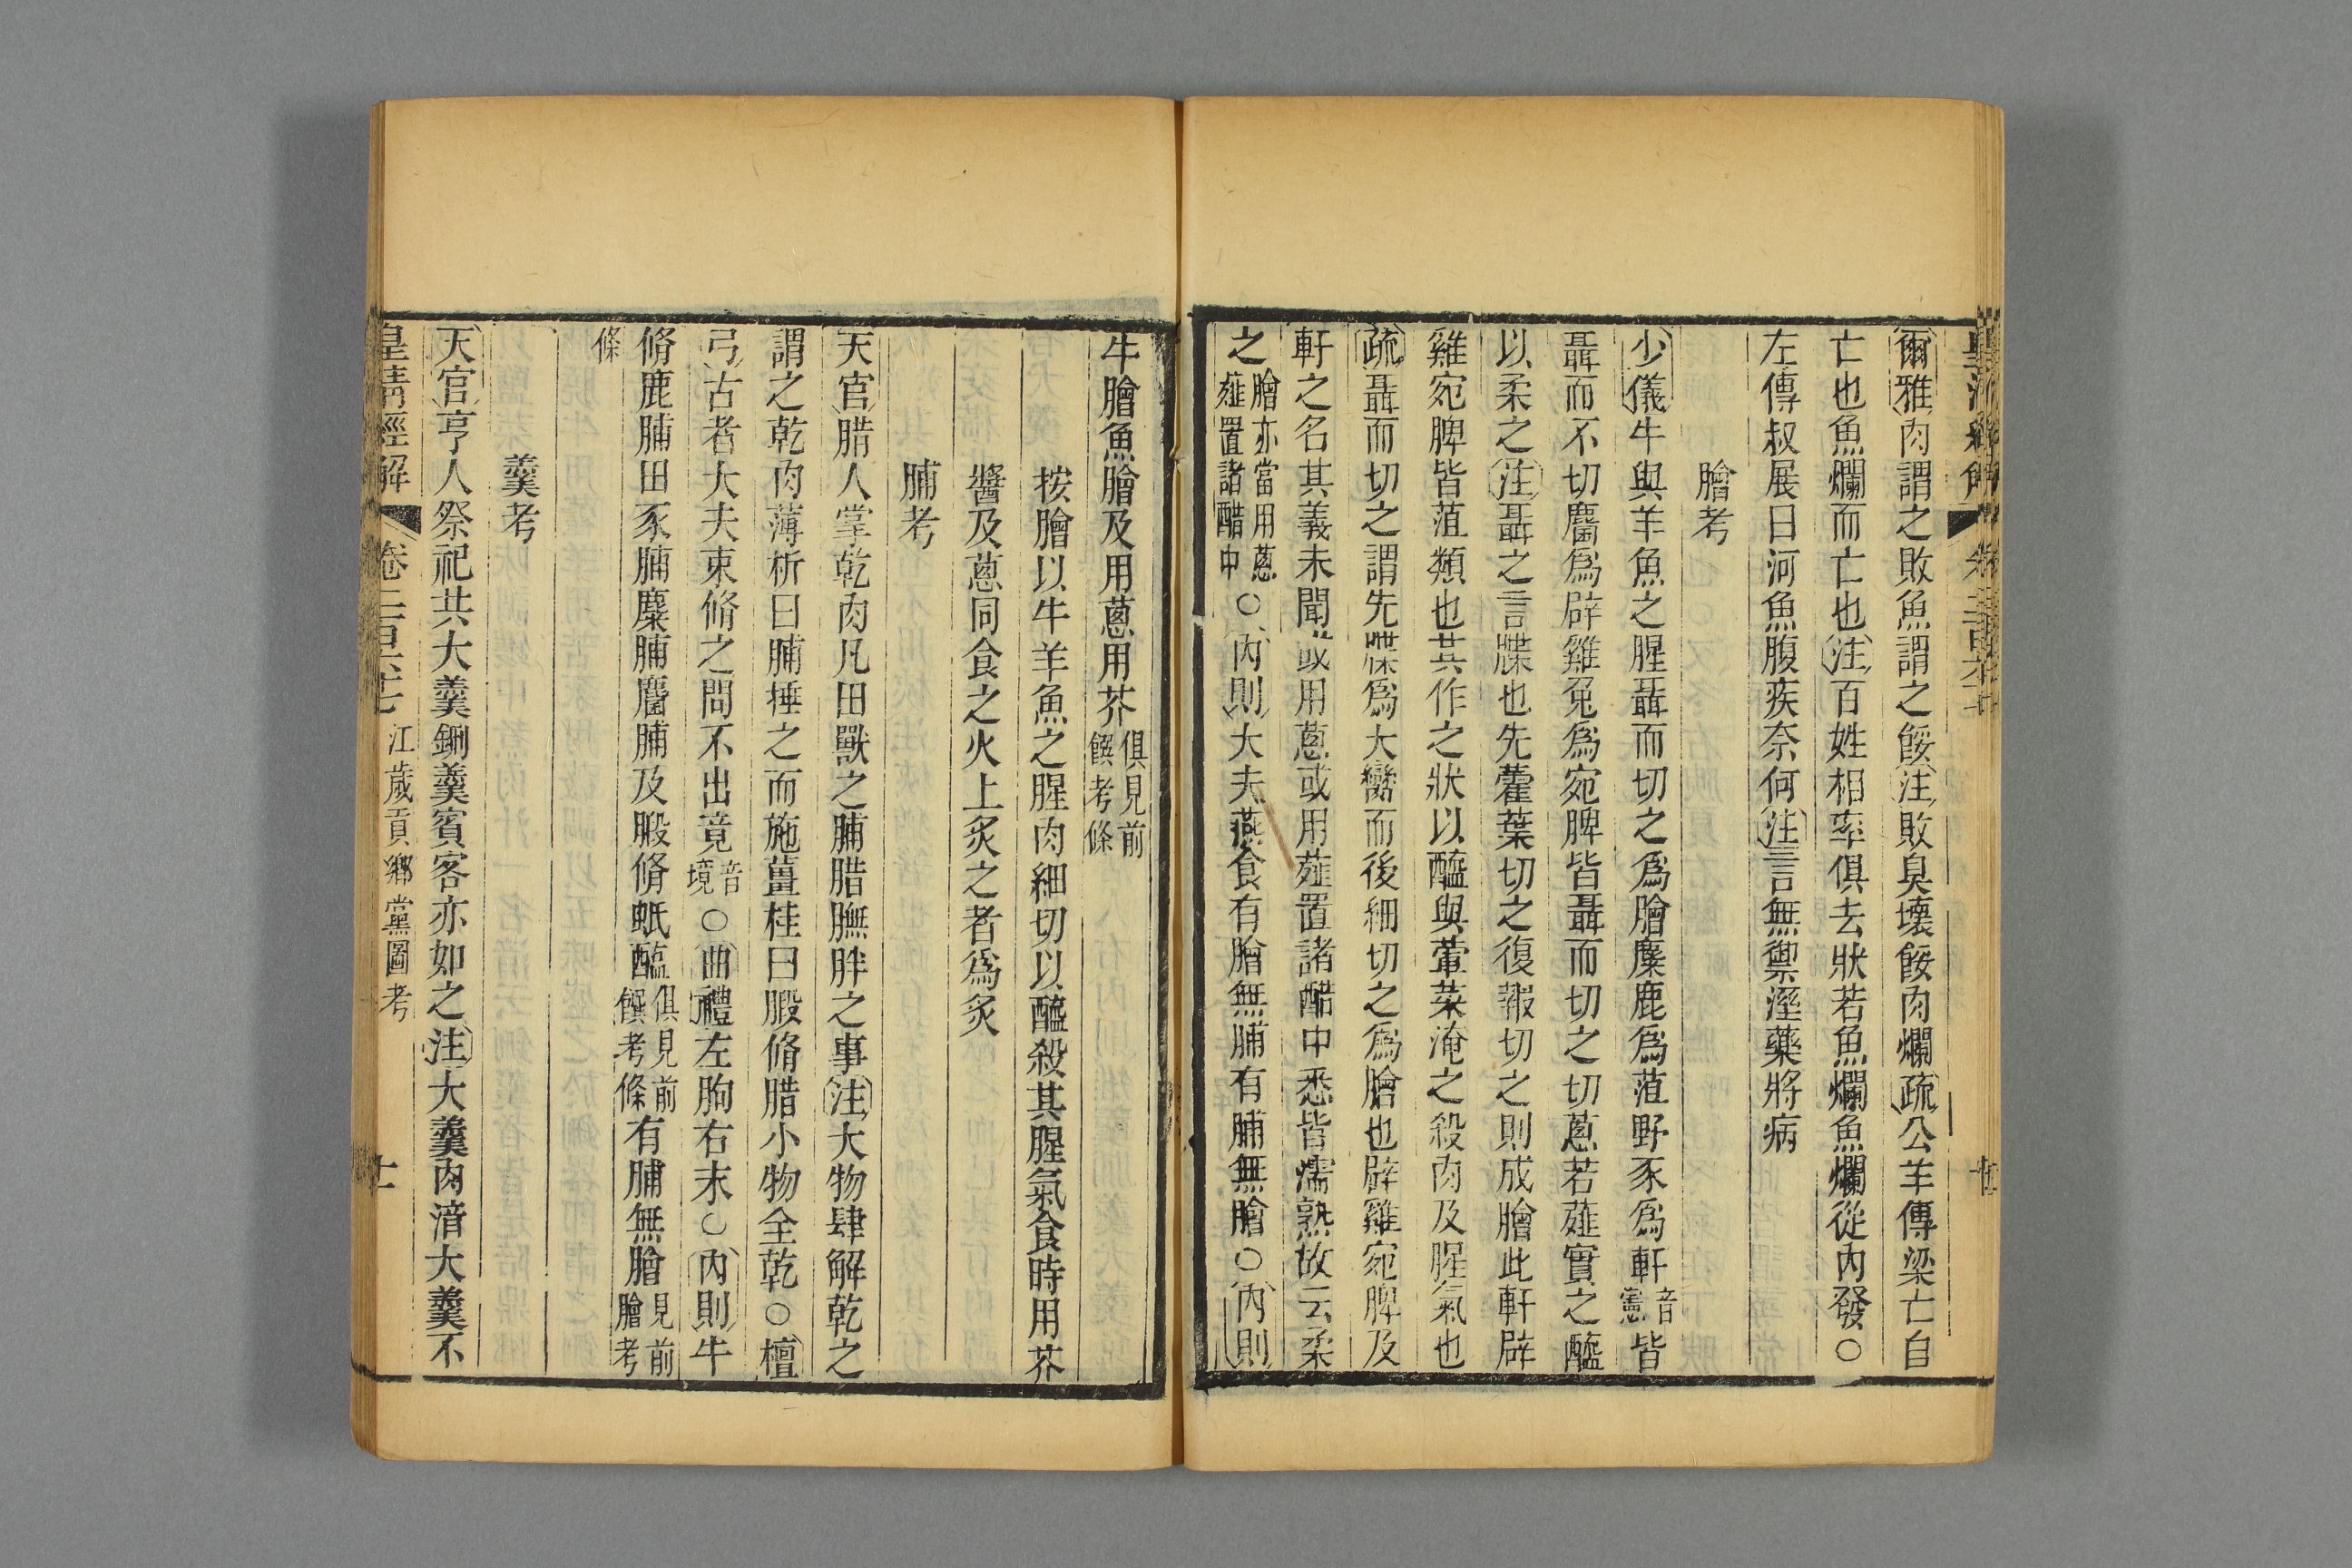 爾雅肉謂之敗魚謂之餒注敗臭壞餒肉爛疏公羊傳梁亡自
亡也魚爛而亡也注百姓相率俱去狀若魚爛魚爛從內發○
左傳叔展曰河魚腹疾奈何注言無禦溼藥將病
膾考
少儀牛與羊魚之腥聶而切之爲膾麋鹿爲菹野豕爲軒音憲皆
聶而不切麕爲辟雞兔爲宛脾皆聶而切之切蔥若薤實之醯
以柔之注聶之言牒也先藿葉切之復報切之則成膾此軒辟
雞宛脾皆菹類也其作之狀以醯與葷菜淹之殺肉及腥氣也
疏聶而切之謂先牒爲大臠而後細切之爲膾也辟雞宛脾及
軒之名其義未聞或用蔥或用薤置諸醋中悉皆濡熟故云柔
之膾亦當用蔥薤置諸醋中○內則大夫燕食有膾無脯有脯無膾○內則
牛膾魚膾及用蔥用芥俱見前饌考條
按膾以牛羊魚之腥肉細切以醯殺其腥氣食時用芥
醬及蔥同食之火上炙之者爲炙
脯考
天官腊人掌乾肉凡田獸之脯腊膴胖之事注大物肆解乾之
謂之乾肉薄析曰脯捶之而施薑桂曰腶脩腊小物全乾○檀
弓古者大夫束脩之問不出竟音境○曲禮左朐右末○內則牛
脩鹿脯田豕脯麋脯麕脯及腶脩蚳醢俱見前饌考條有脯無膾見前膾考
條
羹考
天官亨人祭祀共大羹鉶羹賓客亦如之注大羹肉湆大羹不
皇清經解 卷二百六十七 江歲貢鄉黨圖考